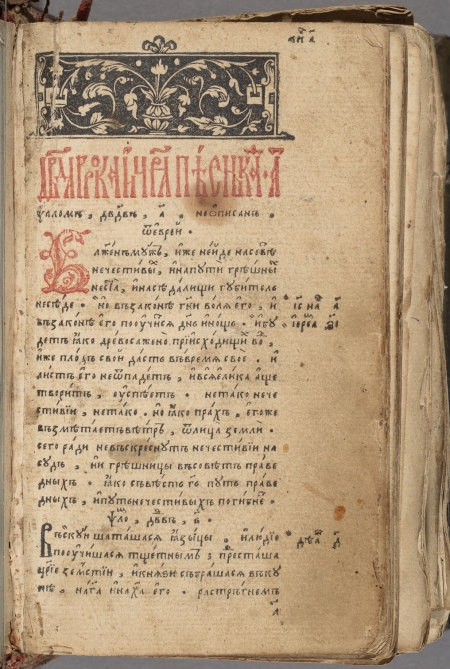 ѱаломъ , дв҃двъ , а҃ . неѡписанъ ,
ѿеврей .
Блаженъ мужъ , иже нейде насовѣтъ
нечестивыⷯ , инапути грѣшныⷯ
неста , инасѣдалищи губитель
неседе . но възаконѣ гн҃и волѧ его , и
възаконѣ его поучитсѧ дн҃ь инощь . ибу
детъ ꙗко древосаженно приисходищиⷯ воⷣ ,
иже плодъ свой дастъ въвремѧ свое . и
листъ его неѿпадетъ , ивсѧ елика аще
творитъ , оуспѣетъ . нетако нече
стивии , нетако . но ꙗко прахъ , егоже
възметаетъ вѣтръ , ѿлица земли .
сего ради невъскреснутъ нечестивии на
судъ , ни грѣшницы въсовѣтъ праве
дныхъ . ꙗко съвѣсть гь҃ путь праве
дныхъ , ипуть нечестивыхъ погибнеⷮ .
ѱаⷧ҇о , дв҃двъ , в҃ .
Въскую шаташасѧ ꙗзыцы , илюдїе
поучишасѧ тщетнымъ . престаша
цр҃їе земстїи , икнѧзи събрашасѧ въку
пѣ , нагⷭ҇а инахⷭ҇а его . растръгнемъ